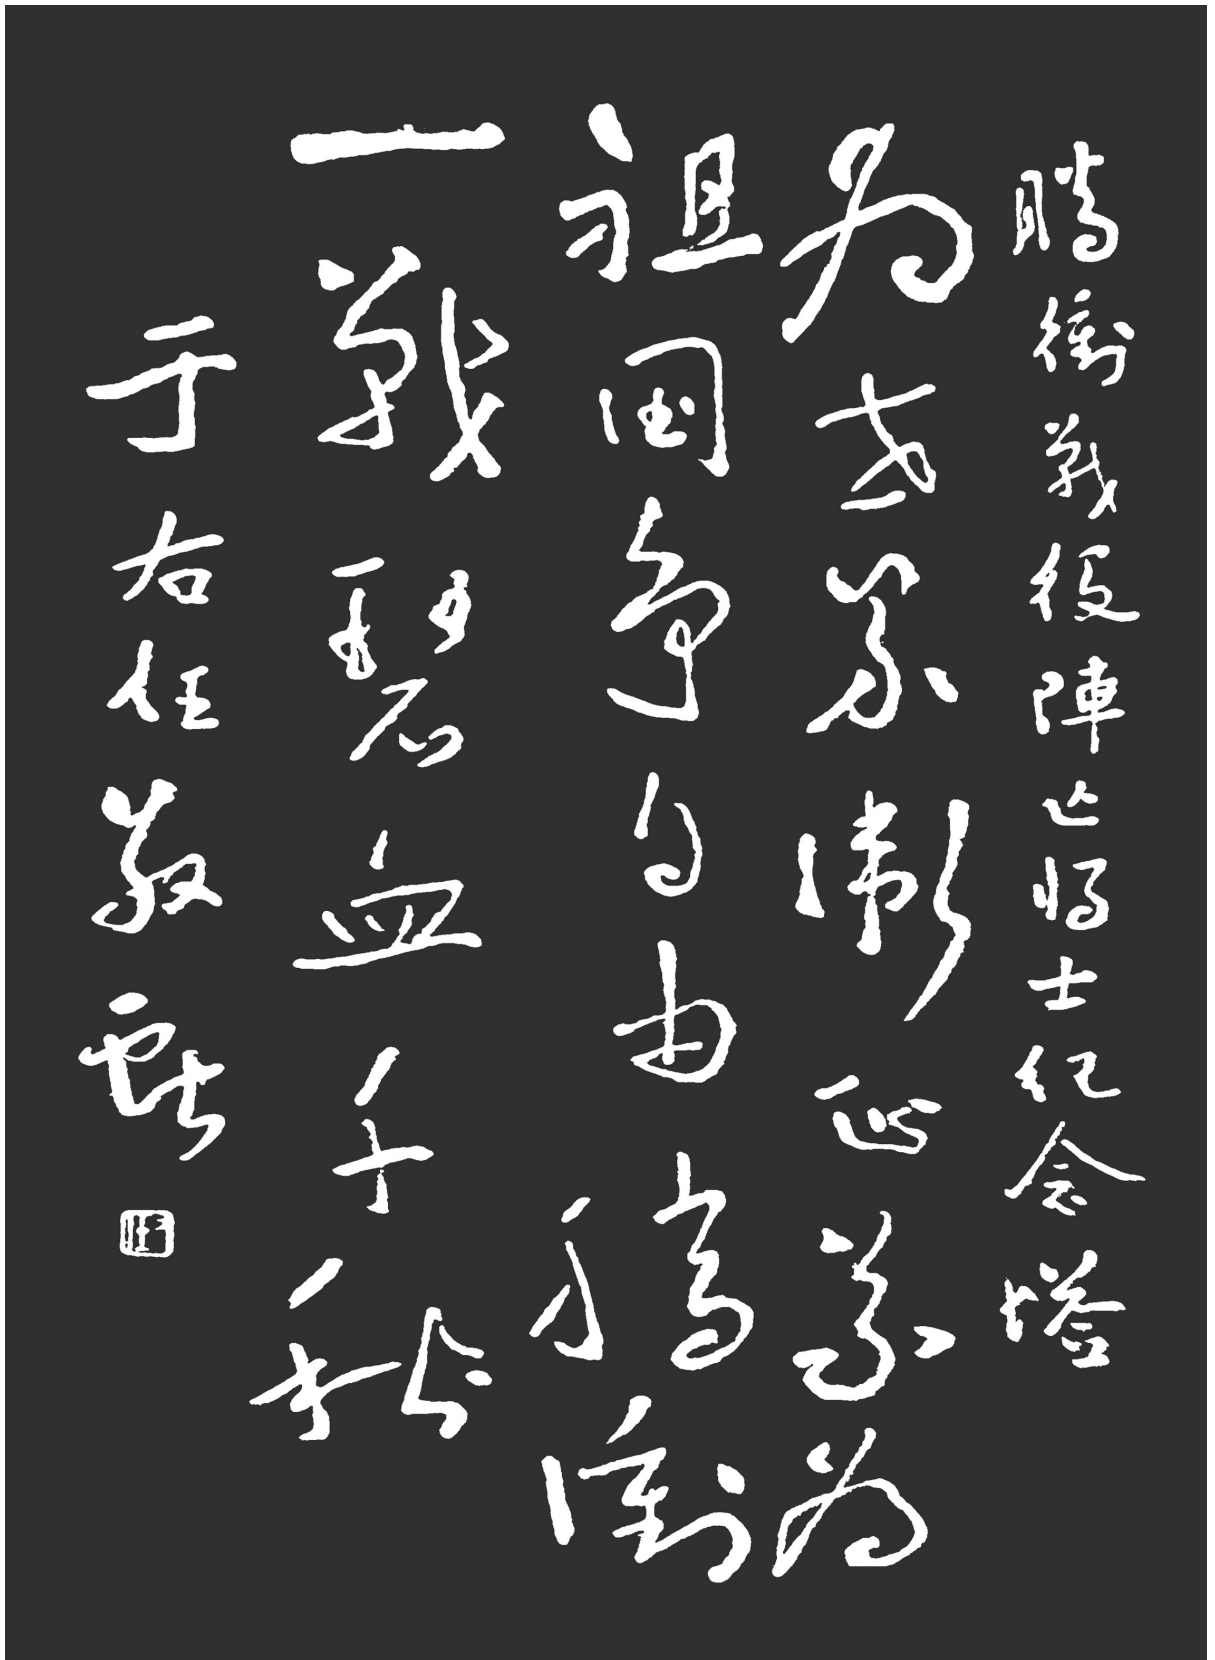 騰衝戰役陣亡將士紀念塔
為世界衛正義為
祖國爭自由騰衝
一戰碧血千秋
于右任敬獻